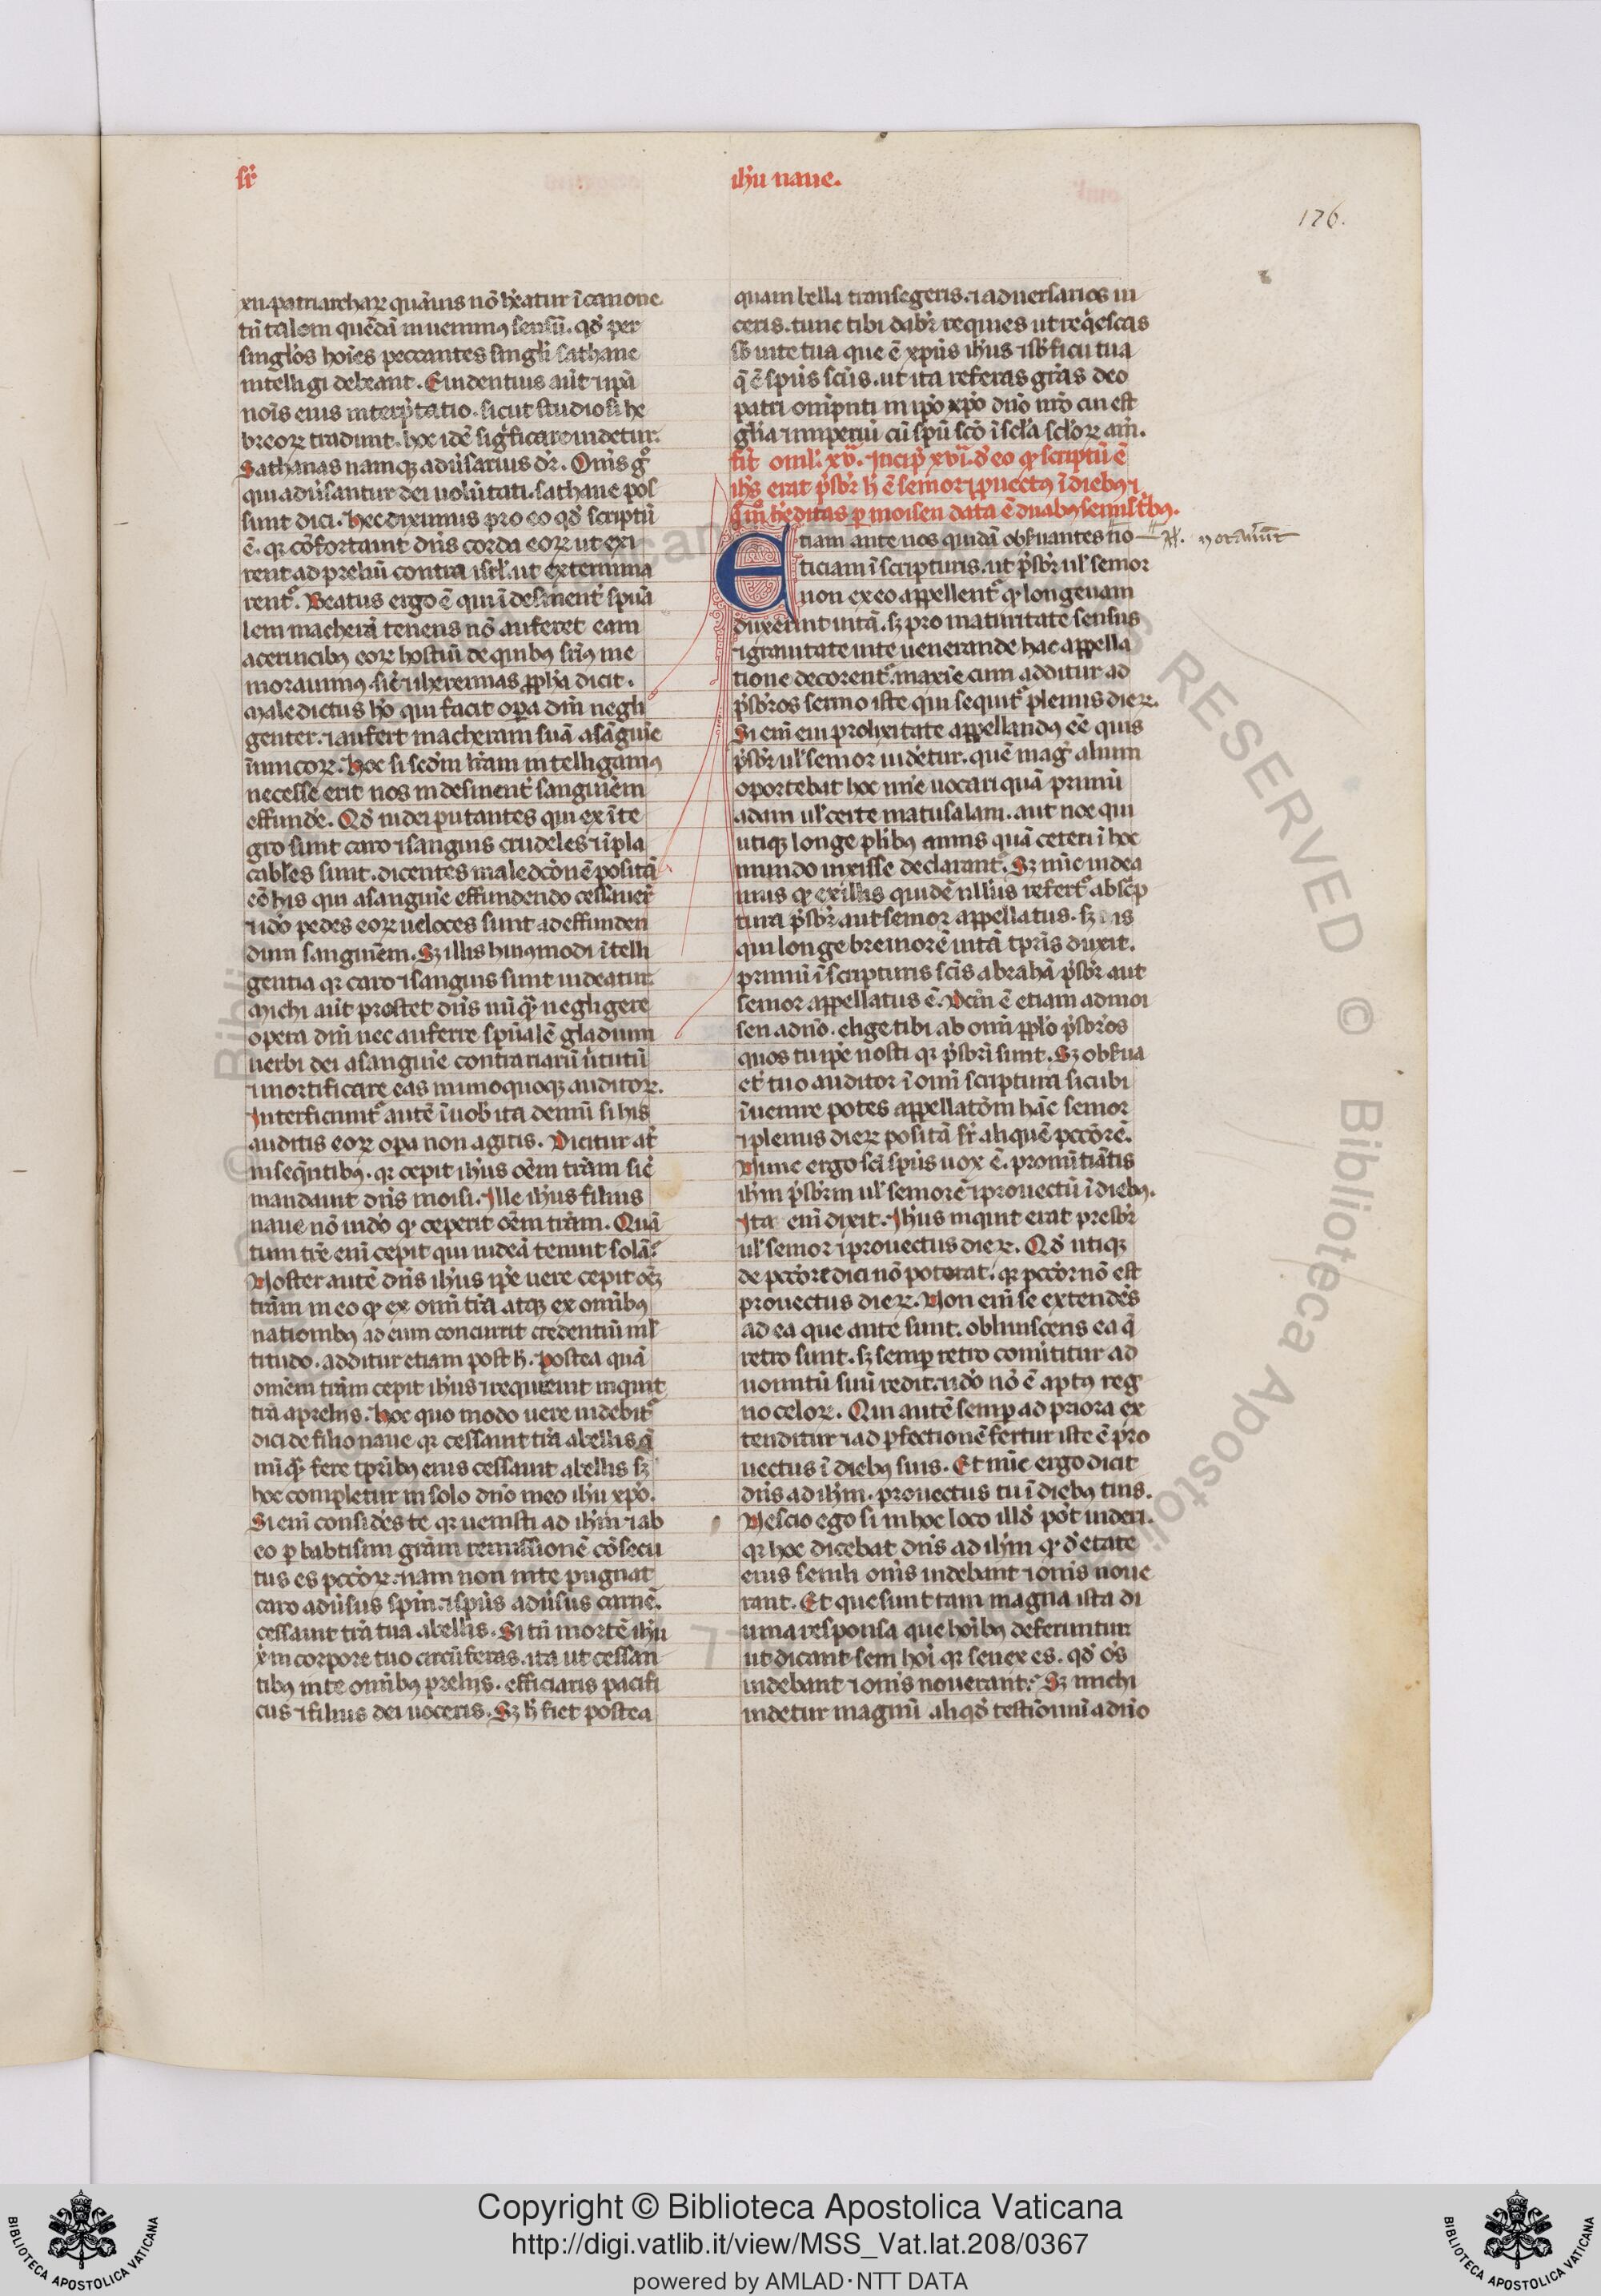 sr̄
ih̄u naue.
176.
xii. patriarchaꝝ quāuis nō h̄eatur ī canone
tn̄ talem quēdā inuenimꝰ sensū. qd̓ per
singl̓os hoīes peccantes singl̓i sathane
intelligi debeant. Euidentius aūt ip̄a
noīs eius interp̄tatio. sicut studiosi he
breoꝝ tradunt. hoc idē sig̓ficare uidetur.
Sathanas namqꝫ adūsarius dr̄. Om̄s gͦ
qui adūsantur dei uolūtati. sathane pos
sunt dici. Hec diximus pro eo qd̓ scriptū
ē. qꝛ cōfortauit dn̄s corda eoꝝ ut exi
rent ad preliū contra isrl̓. ut extermina
rent᷑. Beatus ergo ē qui ī desinent̓ spūa
lem macherā tenens nō auferet eam
a ceruicibꝰ eoꝝ hostiū de quibꝰ sr̄iꝰ me
morauimꝰ. sic̄ ⁊ iheremias ꝓph̄a dicit.
Maledictus hō qui facit oꝑa dn̄i negli
genter. ⁊ aufert macheram suā a sāguīe
inimicoꝝ. Hoc si scd̓m lr̄am intelligamꝰ
necesse erit nos indesinent̓ sanguinēm
effundē. Qd̓ iudei putantes qui ex īte
gro sunt caro ⁊ sanguis crudeles ⁊ īpla
cabl̓es sunt. dicentes maledcōnē positā
eē his qui a sanguīe effundendo cessauer̄
⁊ idō pedes eoꝝ ueloces sunt ad effunden
dum sanguinēm. Sꝫ illis huiꝰmodi ītelli
gentia qꝛ caro ⁊ sanguis sunt uideatur.
Michi aūt prestet dn̄s nūq̄ negligere
opera dn̄i nec auferre spūalē gladium
uerbi dei a sanguīe contrariarū ūtutū
⁊ mortificare eas in unoquoqꝫ auditoꝝ.
Interficiunt᷑ autē ī uob̓ ita demū si his
auditis eoꝝ oꝑa non agitis. Dicitur at̓
in seq̄ntibꝰ. qꝛ cepit ih̄us oēm tr̄am sic̄
mandauit dn̄s moisi. Ille ih̄us filius
naue nō uidō qꝫ ceperit oēm tr̄am. Quā
tum tr̄e enī cepit qui iudeā tenuit solā?
Noster autē dn̄s ih̄us ip̄e uere cepit oēꝫ
tr̄am in eo qꝫ ex omī tr̄a atqꝫ ex omībꝰ
nationibꝰ ad eum concurrit credentiū ml̓
titudo. additur etiam post h̓. Postea quā
omēm tr̄am cepit ih̄us ⁊ requieuit inquit
tr̄a a preliis. Hoc quo modo uere uidebit᷑
dici de filio naue qꝛ cessauit tr̄a a bellis q̄
nūq̄ fere tp̄ribꝰ eius cessauit a bellis sꝫ
hoc completur in solo dn̄o meo ih̄u xp̄o.
Si enī consid̓es te qꝛ uenisti ad ih̄m ⁊ ab
eo ꝑ babtismi grām remissionē cōsecu
tus es pccōꝝ. nam non in te pugnat
caro adūsus spm̄. ⁊ sp̄us adūsus carnē.
cessauit tr̄a tua a bellis. Si tn̄ mortē ih̄u
x̄ in corpore tuo circūferas. ita ut cessan
tibꝰ in te omībꝰ preliis. efficiaris pacifi
cus ⁊ filius dei uoceris. Sꝫ h̓ fiet postea
quam bella transegeris. ⁊ aduersarios ui
ceris. tunc tibi dabr̄ requies ut req̓escas
sb̓ uite tua que ē xp̄us ih̄us ⁊ sb̓ ficu tua
q̄ ē sp̄us sc̄us. ut ita referas grās deo
patri omp̄nti in ip̄o xp̄o dn̄o nr̄o cui est
gl̄ia ⁊ imperiū cū sp̄u sc̄o ī scl̓a scl̓oꝝ am̄.
fit̓ omil̓. xv̄. Incip̄ xvı̄. d̓ eo qꝫ scriptū ē
ih̄s erat p̄sbr̄ h̓ ē senior ⁊ ꝓuectꝰ ī diebꝰ ⁊
qm̄ h̓editas ꝑ moisen data ē duabꝰ semist̓bꝰ.
Etiam ante nos quidā obs̓uantes no
taui᷑nt
ticiam ī scripturis. ut p̄sbr̄ ul̓ senior
non ex eo appellent᷑ qꝫ longeuam
duxerint uitā. sꝫ pro maturitate sensus
⁊ grauitate uite uenerande hac appella
tione decorent᷑. maxīe cum additur ad
p̄sbr̄os sermo iste qui sequit᷑ plenus dieꝝ.
Si enī eui prolixitate appellandꝰ eē quis
p̄sbr̄ ul̓ senior uidetur. quē mag̓ alium
oportebat hoc nn̄e uocari quā primū
adam ul̓ certe matusalam. aut noe qui
utiqꝫ longe pl̓ibꝰ annis quā ceteri ī hoc
mundo uixisse declarant᷑. Sꝫ nūc uidea
mus qꝫ ex illis quidē nullus refert᷑ a sc̓p
tura p̄sbr̄ aut senior appellatus. sꝫ is
qui longe breuiorē uitā tp̄ris duxit.
primū ī scripturis sc̄is abrahā p̄sbr̄ aut
senior appellatus ē. Dcm̄ ē etiam ad moi
sen a dn̄o. elige tibi ab omī ꝓpl̓o p̄sbr̄os
quos tu ip̄e nosti qꝛ p̄sbr̄i sunt. Sꝫ obs̓ua
et̓ tuo auditor ī omī scriptura sicubi
īuenire potes appellatōm hāc senior
⁊ plenus dieꝝ positā sr̄ aliquē pccōrē.
Nunc ergo sc̄i sp̄us uox ē. pronūtiātis
ih̄m p̄sbr̄m ul̓ seniorē ⁊ prouectū ī diebꝰ.
Ita enī dixit. Ih̄us inquit erat presbr̄
ul̓ senior ⁊ prouectus dieꝝ. Qd̓ utiqꝫ
de pccōre dici nō poterat. qꝛ pccōr nō est
prouectus dieꝝ. Non enī se extendēs
ad ea que ante sunt. obliuiscens ea q̄
retro sunt. sꝫ semꝑ retro conūtitur ad
uomitū suū redit. ⁊ idō nō ē aptꝰ reg
no celoꝝ. Qui autē semꝑ ad priora ex
tenditur ⁊ ad ꝑfectionē fertur iste ē pro
uectus ī diebꝰ suis. Et nūc ergo dicit
dn̄s ad ih̄m. prouectus tu ī diebꝰ tuis.
Nescio ego si in hoc loco illd̓ pōt uideri.
qꝛ hoc dicebat dn̄s ad ih̄m qꝫ d̓ etate
eius senili om̄s uidebant ⁊ om̄s noue
rant. Et que sunt tam magna ista di
uina responsa que hoībꝰ deferuntur
ut dicant seni hoī qꝛ senex es. qd̓ ōs
uidebant ⁊ om̄s nouerant? Sꝫ michi
uidetur magnū aliqd̓ testīoniū a dn̄o